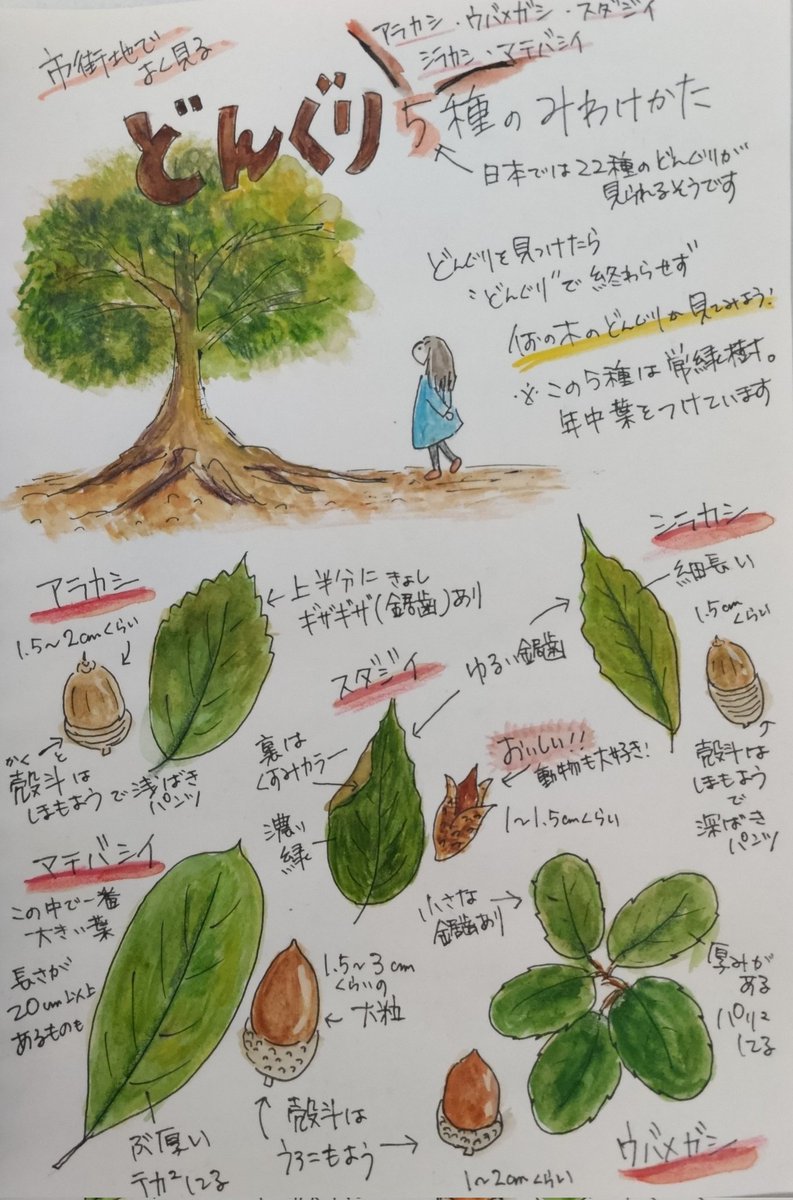 市街地で
よく見る
アラカシ・ウバメガシ・スダジイ
シラカシ・マテバシイ
どんぐり5種のみわけかた
日本では22種のどんぐりが
見られるそうです
どんぐりを見つけたら
"どんぐり"で終わらせず
何の木のどんぐりか見てみよう!
※この5種は常緑樹。
年中葉をつけています
アラカシ
1.5〜2cmくらい
上半分に
ギザギザ(鋸歯)あり
きょし
かくと
殻斗は
しまもようで浅ばき
パンツ
シラカシ
細長い
1.5cm
くらい
ゆるい鋸歯
殻斗は
しまもよう
で
深ばき
パンツ
スダジイ
裏は
くすみカラー
濃い
緑
おいしい!!
動物も大好き!
1〜1.5cmくらい
マテバシイ
この中で一番
大きい葉
長さが
20cm以上
あるものも
ぶ厚い
テカテカしてる
1.5〜3cm
くらいの
大粒
殻斗は
うろこもよう
小さな
鋸歯あり
厚みが
ある
パリパリ
してる
1〜2cmくらい
ウバメガシ